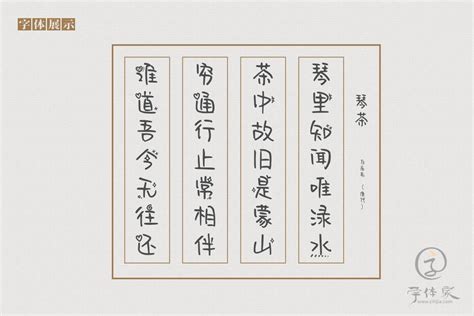 字体展示
琴茶
白居易 (唐代)
琴里知闻唯渌水
茶中故旧是蒙山
穷通行止常相伴
难道吾今无往还
字体家